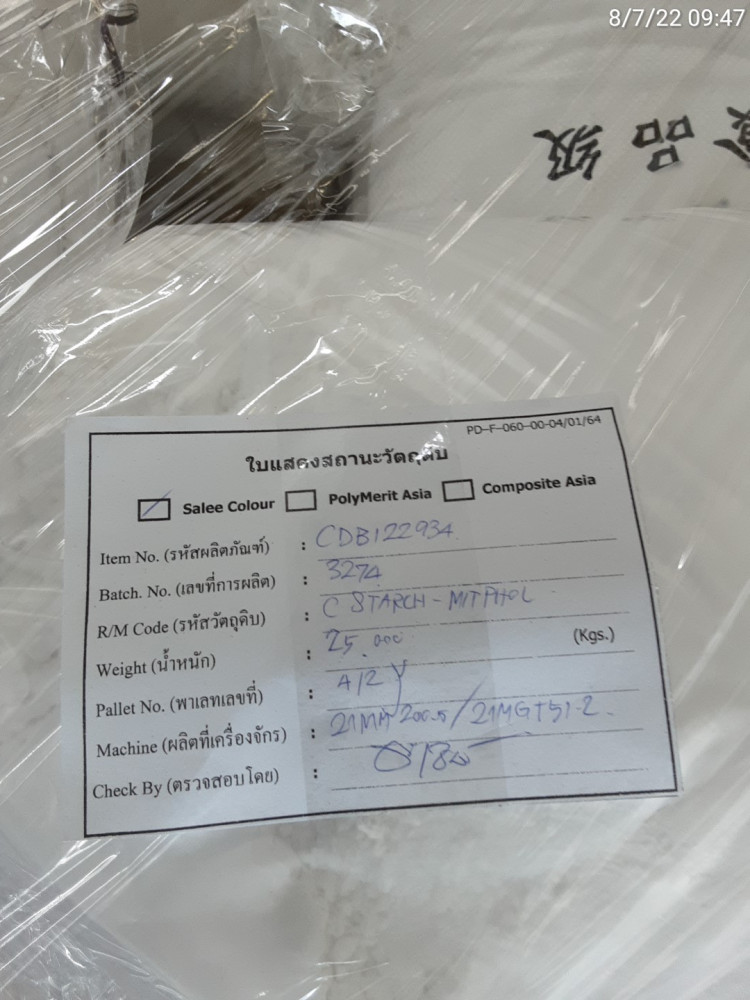 8/7/22 09:47
品级
PD-F-060-00-04/01/64
ใบแสดงสถานะวัตถุดิบ
Salee Colour PolyMerit Asia Composite Asia
Item No. (รหัสผลิตภัณฑ์) : CDB122934
Batch. No. (เลขที่การผลิต) : 3274
R/M Code (รหัสวัตถุดิบ) : C STARCH - MITPHOL
Weight (น้ำหนัก) : 25.000 (Kgs.)
Pallet No. (พาเลทเลขที่) : 4/2
Machine (ผลิตที่เครื่องจักร) :
Check By (ตรวจสอบโดย) :